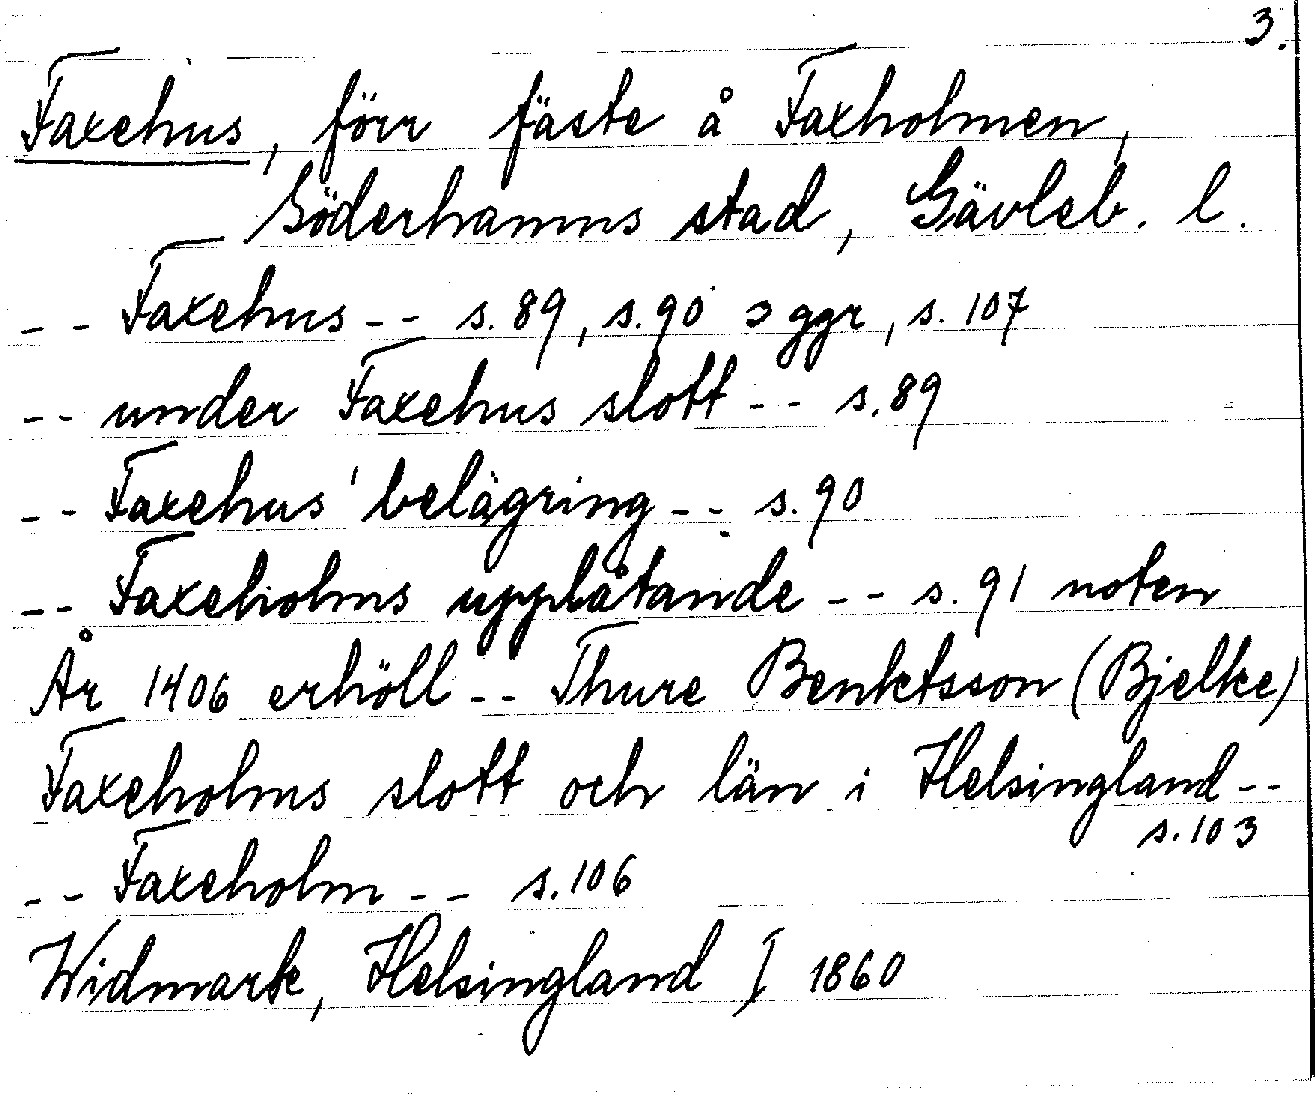 3.
Faxehus, förr fäste å Faxholmen,
Söderhamns stad, Gävleb. l.
-- Faxehus -- s. 89, s. 90 3 ggr, s. 107
-- under Faxehus slott -- s. 89
-- Faxehus' belägring -- s. 90
-- Faxeholms upplåtande -- s. 91 noten
År 1406 erhöll -- Thure Benktsson (Bjelke)
Faxeholms slott och län i Helsingland --
s. 103
-- Faxeholm -- s. 106
Widmark, Helsingland I 1860